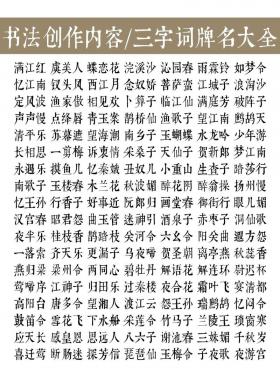 书法创作内容/三字词牌名大全
满江红 虞美人 蝶恋花 浣溪沙 沁园春 雨霖铃 如梦令
忆江南 钗头凤 西江月 念奴娇 菩萨蛮 江城子 浪淘沙
定风波 渔家傲 相见欢 卜算子 临江仙 满庭芳 破阵子
声声慢 点绛唇 青玉案 鹊桥仙 渔歌子 望江南 鹧鸪天
清平乐 苏幕遮 望海潮 南乡子 玉蝴蝶 水龙吟 少年游
长相思 一剪梅 诉衷情 采桑子 天仙子 贺新郎 梦江南
永遇乐 摸鱼儿 忆秦娥 丑奴儿 小重山 生查子 踏莎行
南歌子 玉楼春 木兰花 秋波媚 醉花阴 醉翁操 扬州慢
忆王孙 行香子 好事近 阮郎归 画堂春 御街行 眼儿媚
汉宫春 昭君怨 曲玉管 迷神引 酒泉子 赤枣子 洞仙歌
夜半乐 桂枝香 鹊踏枝 关河令 六幺令 阳关曲 遐方怨
一落索 齐天乐 更漏子 乌夜啼 贺圣朝 高亭宴 秋蕊香
燕归梁 梁州令 两同心 碧牡丹 解语花 解连环 尉迟杯
莺啼序 江神子 归田乐 过秦楼 夜合花 霜叶飞 宴清都
高阳台 唐多令 望湘人 渡江云 怨王孙 瑞鹤仙 忆闷令
鼓笛令 雪花飞 下水船 采莲令 竹马子 兰陵王 琐窗寒
应天长 感皇恩 思远人 八六子 谢池春 三姝媚 千秋岁
喜迁莺 断肠迷 探芳信 琵琶仙 玉梅令 子夜歌 夜游宫